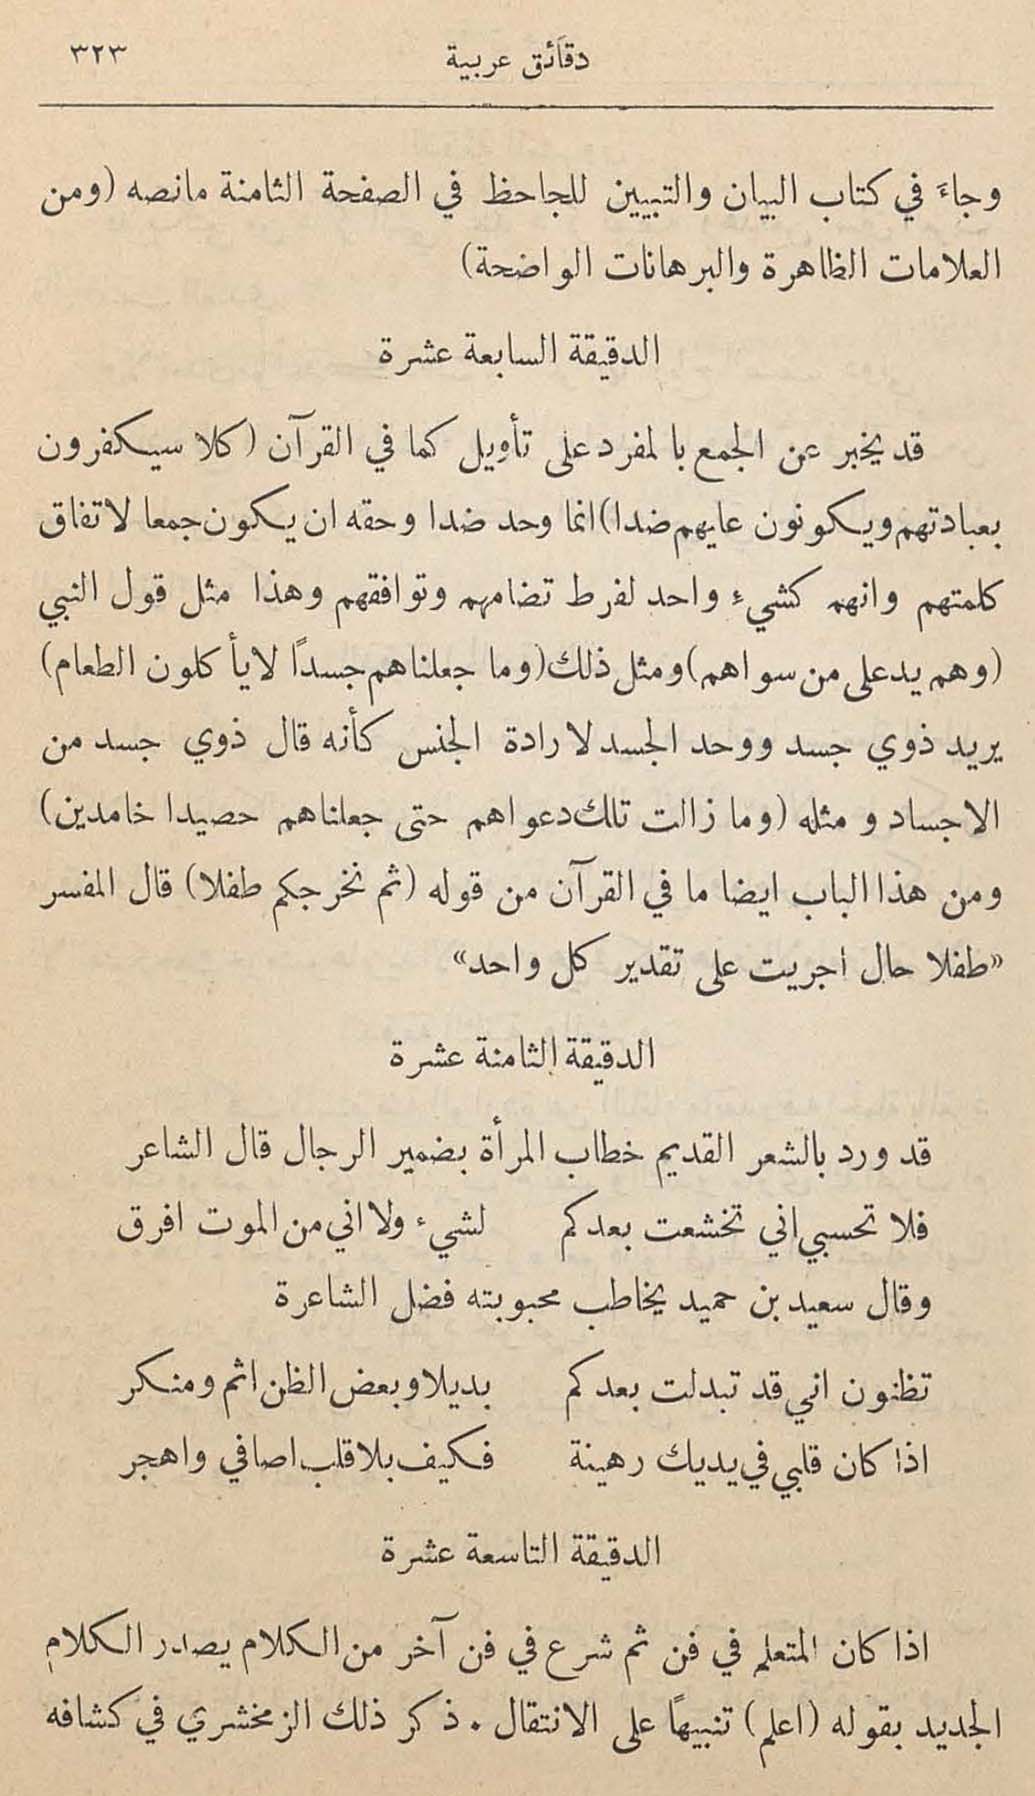 دقائق عربية ٣٢٣
وجاءَ في كتاب البيان والتبيين للجاحظ في الصفحة الثامنة مانصه (ومن
العلامات الظاهرة والبرهانات الواضحة)
الدقيقة السابعة عشرة
قد يخبر عن الجمع بالمفرد على تأويل كما في القرآن (كلا سيكفرون
بعبادتهم ويكونون عليهم ضدا) انما وحد ضدا وحقه ان يكون جمعا لاتفاق
كلمتهم وانهم كشيءٍ واحد لفرط تضامهم وتوافقهم وهذا مثل قول النبي
(وهم يد على من سواهم) ومثل ذلك (وما جعلناهم جسدًا لا يأكلون الطعام)
يريد ذوي جسد ووحد الجسد لارادة الجنس كأنه قال ذوي جسد من
الاجساد ومثله (وما زالت تلك دعواهم حتى جعلناهم حصيدا خامدين)
ومن هذا الباب ايضا ما في القرآن من قوله (ثم نخرجكم طفلا) قال المفسر
«طفلا حال اجريت على تقدير كل واحد»
الدقيقة الثامنة عشرة
قد ورد بالشعر القديم خطاب المرأة بضمير الرجال قال الشاعر
فلا تحسبي اني تخشعت بعدكم لشيء ولا اني من الموت افرق
وقال سعيد بن حميد يخاطب محبوبته فضل الشاعرة
تظنون اني قد تبدلت بعدكم بديلا وبعض الظن اثم ومنكر
اذا كان قلبي في يديك رهينة فكيف بلا قلب اصافي واهجر
الدقيقة التاسعة عشرة
اذا كان المتعلم في فن ثم شرع في فن آخر من الكلام يصدر الكلام
الجديد بقوله (اعلم) تنبيهًا على الانتقال . ذكر ذلك الزمخشري في كشافه